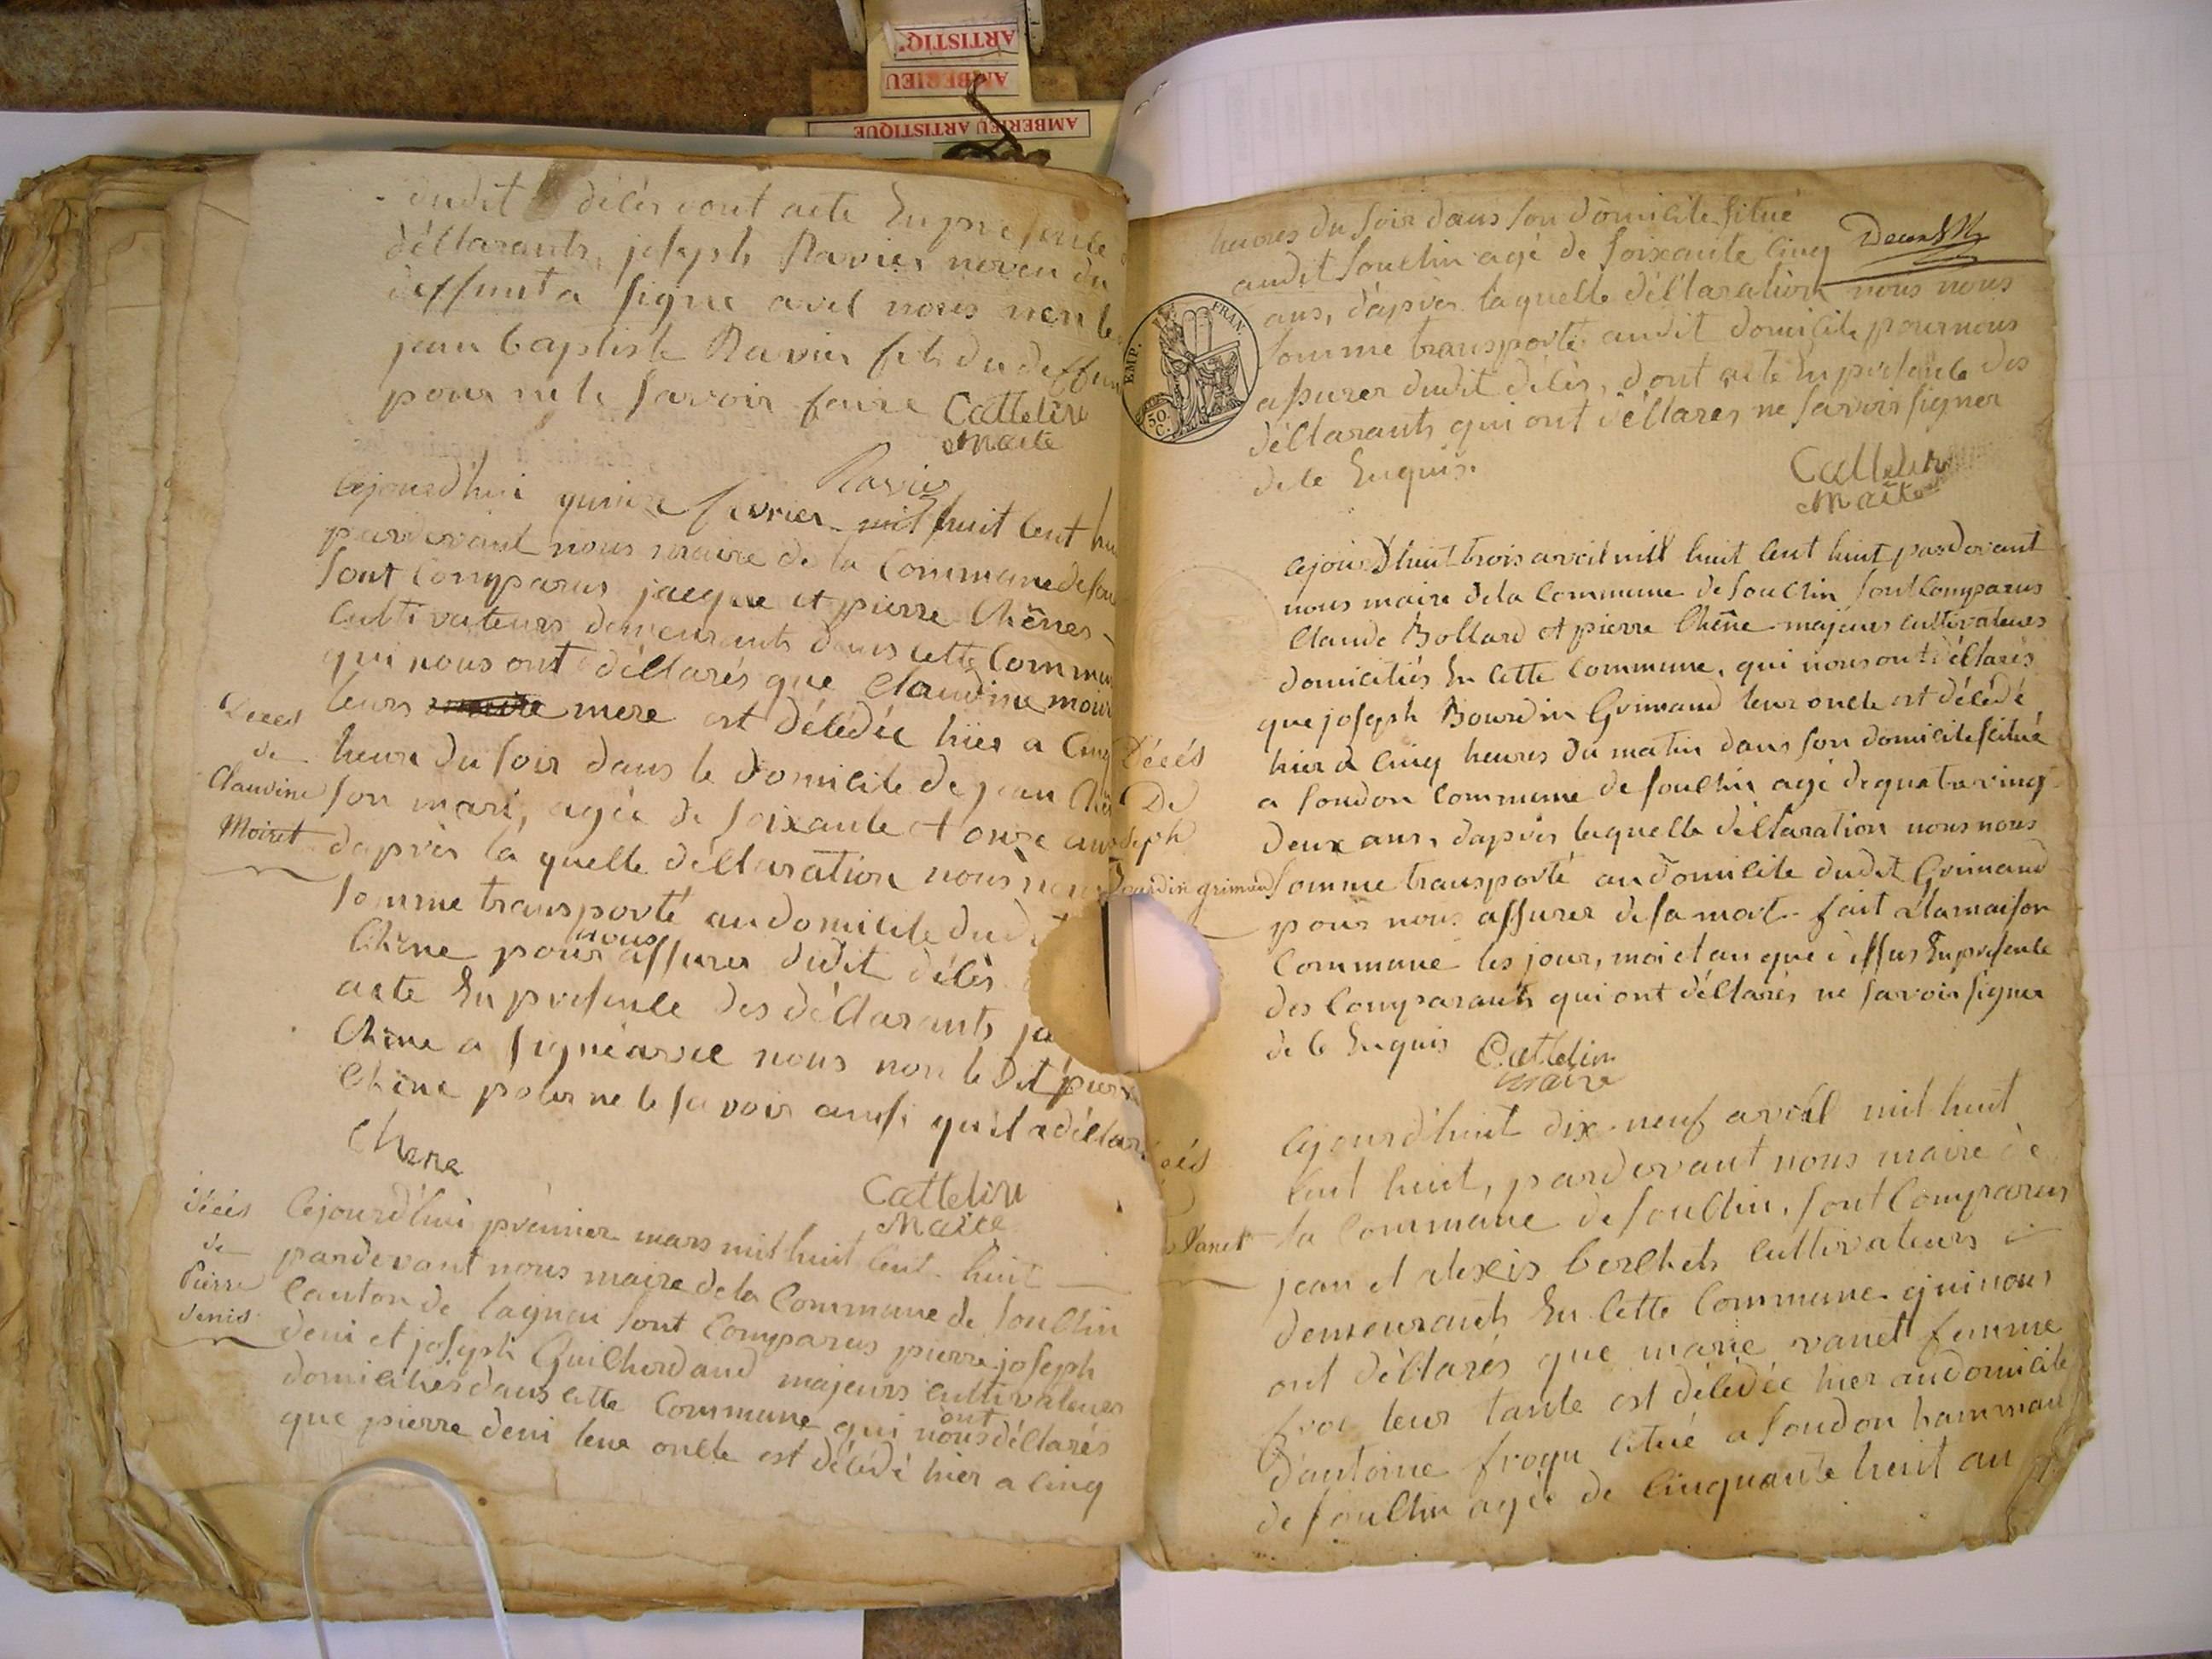 ARTISTIQ'
AMBERIEU
AMBERIEU ARTISTIQUE
dudit décès dont acte En presence
déclarants, joseph Ravier neveu du
deffunt a signé avec nous non le
jean baptiste Ravier fils du deffun
pour ne le savoir faire
Cattelin
Maire
Ravier
Cejourd'hui quinze fevrier mil huit cent hu
pardevant nous maire de la Commune de sou
sont Comparus jacque et pierre Chênes
Cultivateurs demeurants dans cette Commun
qui nous ont déclarés que Claudine moir
leurs mere est décédée hier a Cinq
heure du soir dans le domicile de jean Chê
son mari, agée de soixante et onze ans
dapvès la quelle déclaration nous nous
somme transporté au domicile dud
Chêne pour nous assurer dudit décès
acte En presence des déclarants ja
Chêne a signé avec nous non le dit pierr
Chêne pour ne le savoir ainsi qu'il a déclar
Décés
de
Claudine
Moiret
Chene
Cattelin
Maire
Cejourd'hui prémier mars mil huit cent huit
pardevant nous maire de la Commune de souclin
Canton de lagneu sont Comparus pierre joseph
deni et joseph Guilherdaud majeurs cultivateurs
domiciliés dans cette Commune qui nous ont déclarés
que pierre deni leur oncle est décédé hier a cinq
décés
de
Pierre
denis
heures du soir dans son domicile situé
audit souclin agé de soixante Cinq
ans, dapvès laquelle déclaration nous nous
somme transporté audit domicile pour nous
assurer dudit décès, dont acte En presence des
déclarants qui ont déclares ne savoir signer
de ce Enquis.
EMP. FRAN.
50
C.
Cattelin
Maire
Cejourd'huit trois avril mil huit cent huit pardevant
nous maire de la Commune de souclin sont Comparus
Claude Bollard et pierre Chêne majeurs cultivateurs
domiciliés En cette Commune, qui nous ont déclarés
que joseph Bourdin Grimaud leur oncle est décédé
hier a Cinq heures du matin dans son domicile scitué
a soudon Commune de souclin agé de quatre vingt
deux ans, dapvès laquelle déclaration nous nous
somme transporté au domicile dudit Grimaud
pour nous assurer de sa mort. fait a la maison
Commune les jour, moi et an que dessus En presence
des Comparants qui ont déclarés ne savoir signer
de ce Enquis
Décés
De
seph
Bourdin grimaud
Cattelin
maire
Cejourd'huit dix-neuf avril mil huit
cent huit, pardevant nous maire de
la Commune de souclin, sont Comparus
jean et alexis berchets cultivateurs
demeurants En Cette Commune qui nous
ont déclarés que marie vanet femme
froi leur tante est décédée hier au domicile
dantoine froqu citué a soudon hammau
de souclin agée de Cinquante huit an
cés
Vanet